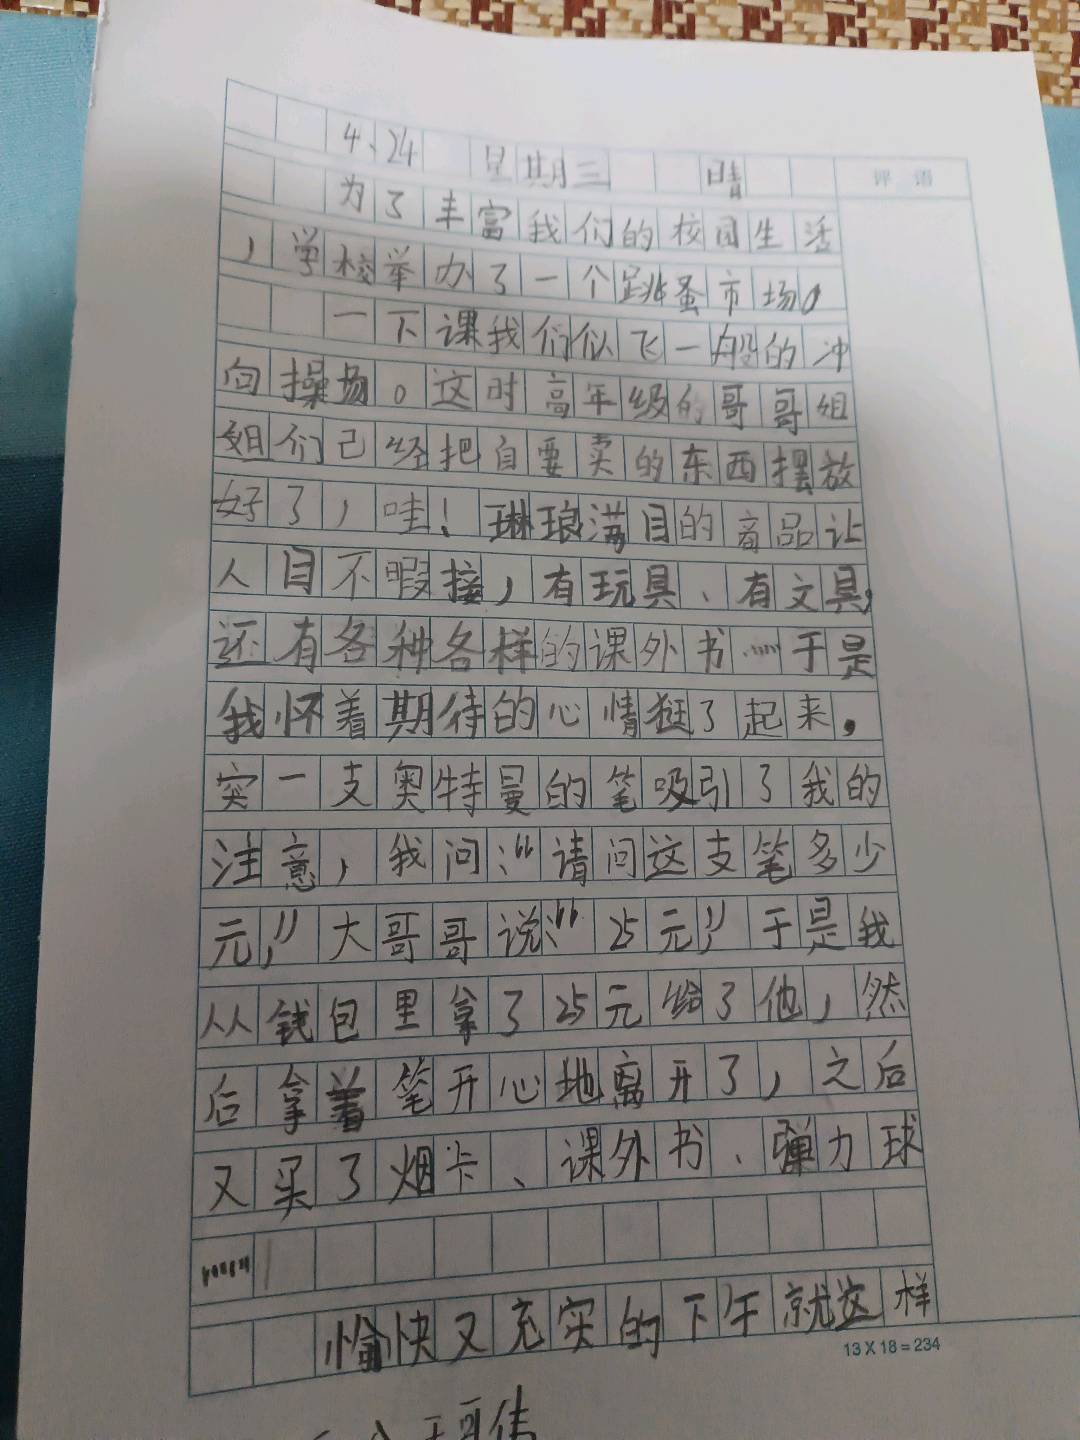 4、24 星期三 晴
评 语
为了丰富我们的校园生活
，学校举办了一个跳蚤市场。
一下课我们似飞一般的冲
向操场。这时高年级的哥哥姐
姐们已经把自要卖的东西摆放
好了，哇！琳琅满目的商品让
人目不暇接，有玩具、有文具，
还有各种各样的课外书……于是
我怀着期待的心情逛了起来，
突一支奥特曼的笔吸引了我的
注意，我问：“请问这支笔多少
元，”大哥哥说：“25元，”于是我
从钱包里拿了25元给了他，然
后拿着笔开心地离开了，之后
又买了烟卡、课外书、弹力球
……
愉快又充实的下午就这样
13 X 18 = 234